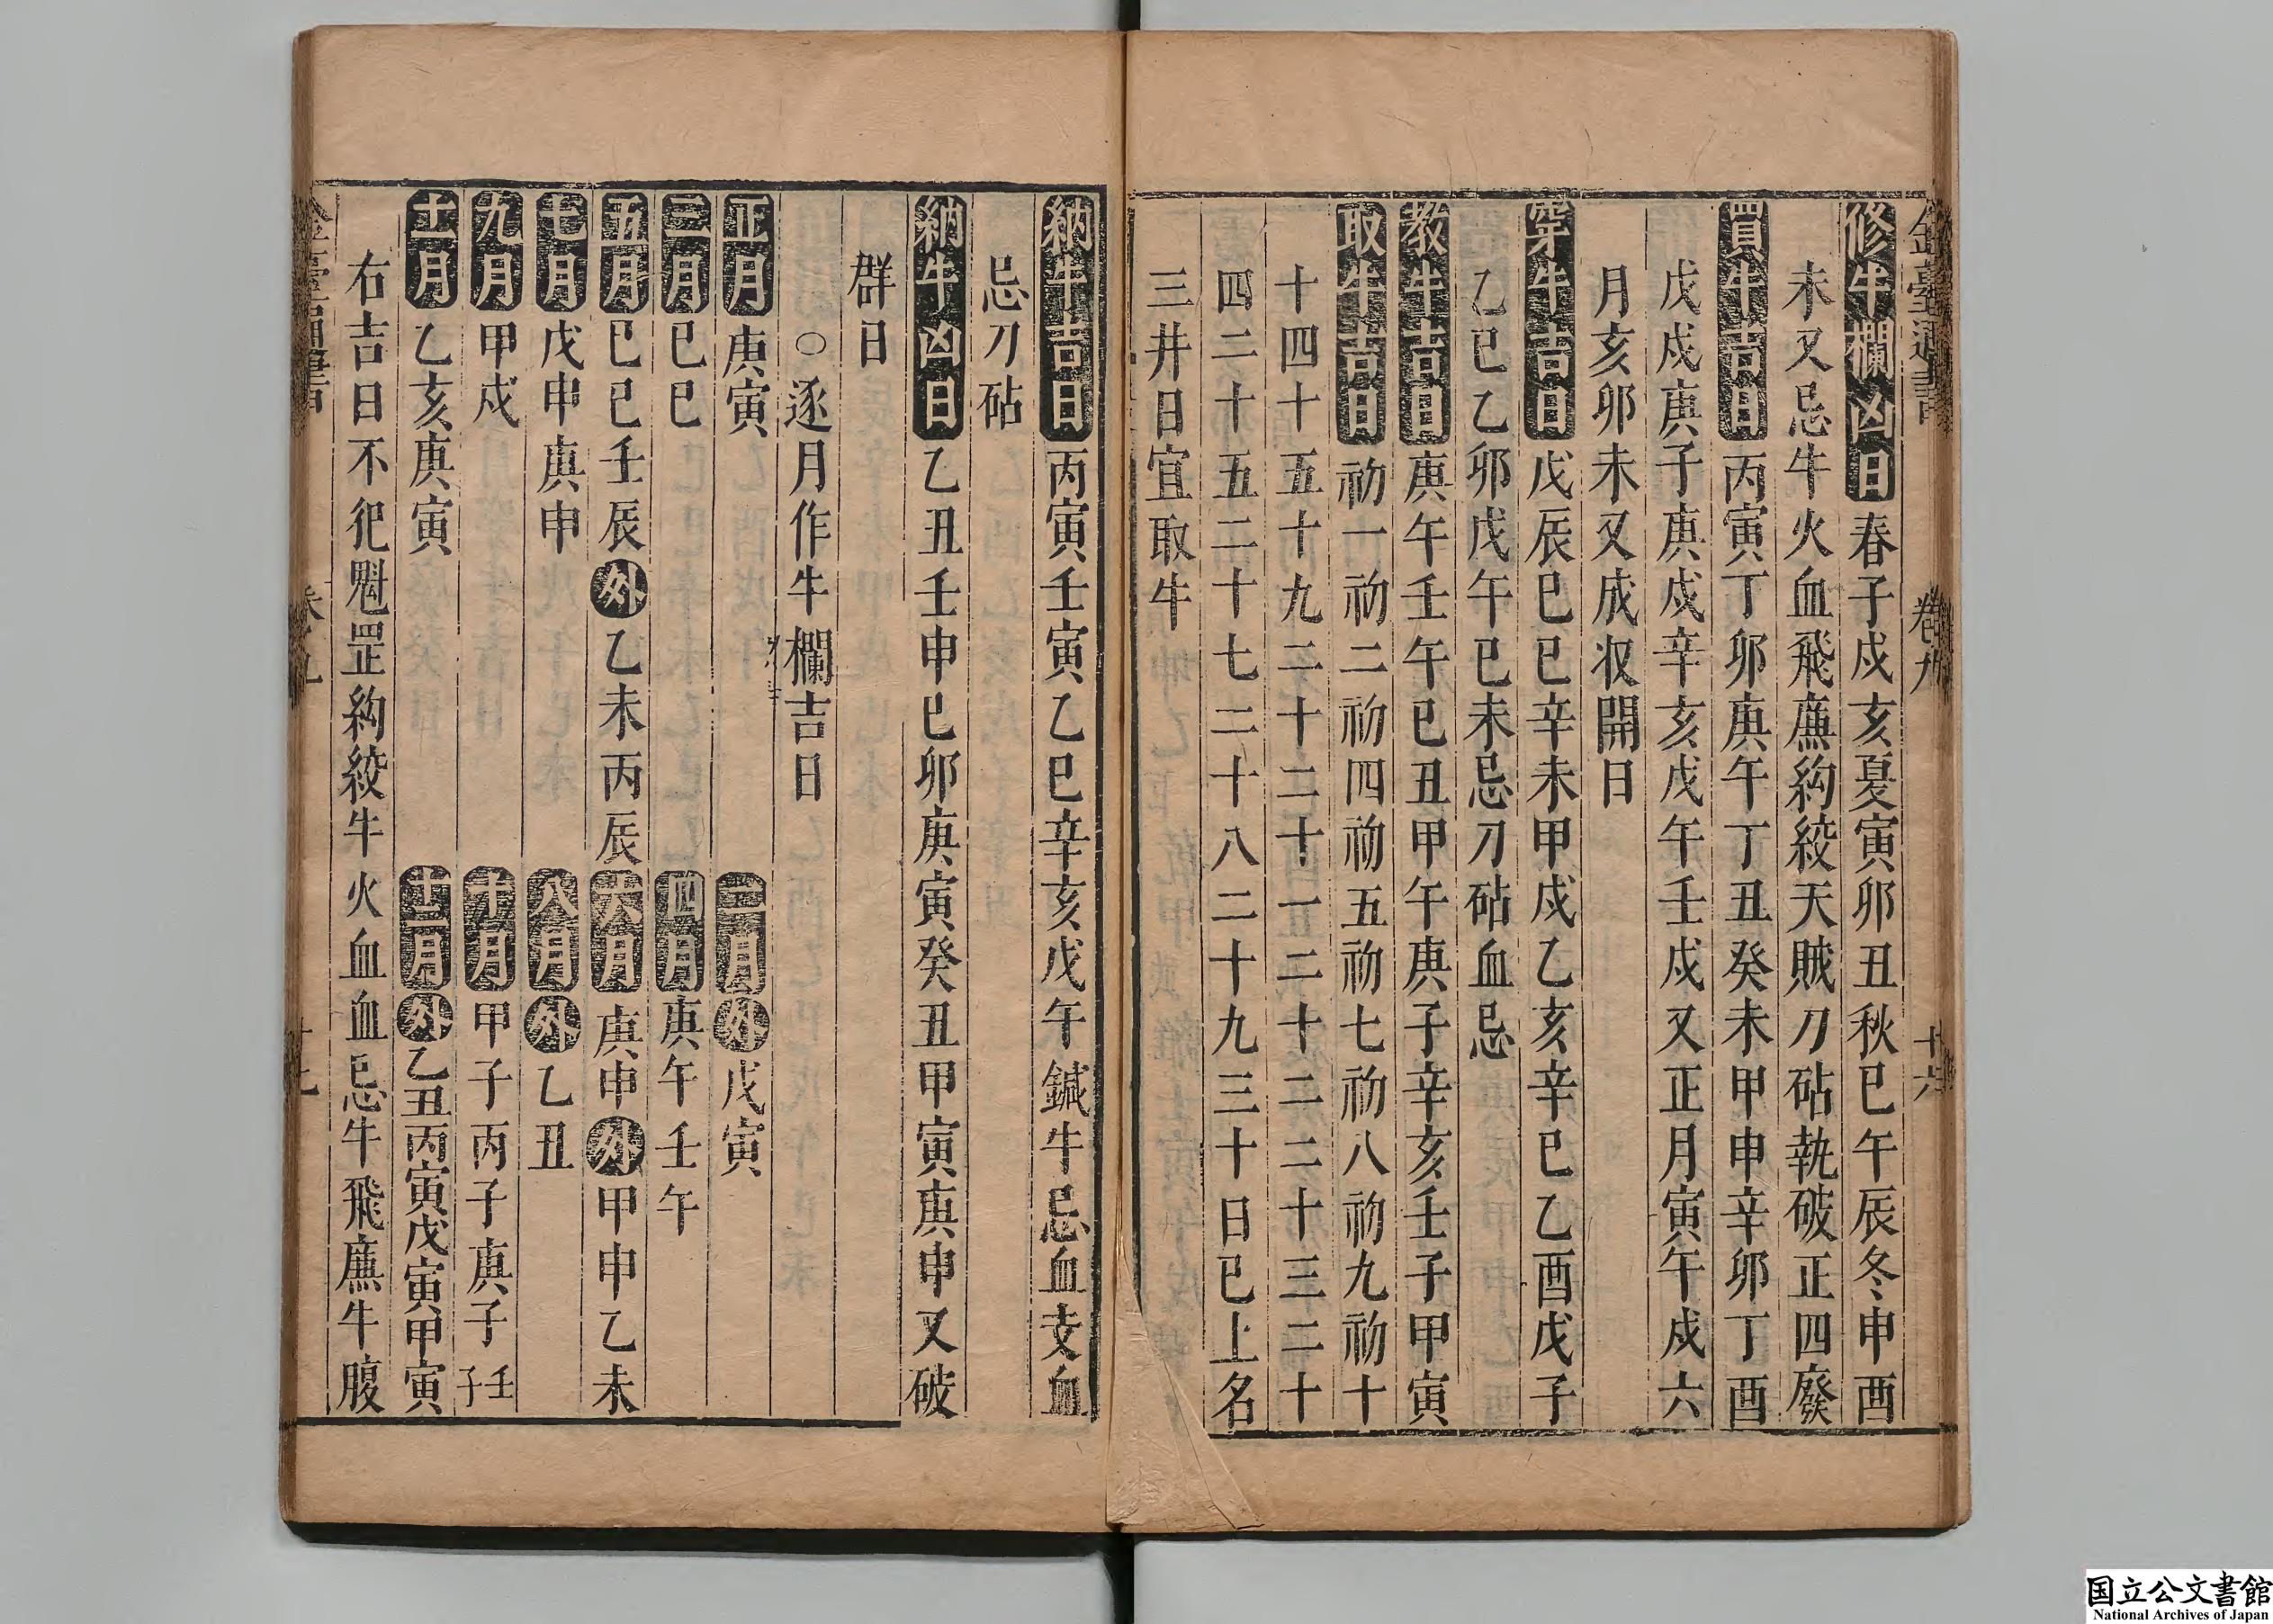 金臺通書 卷九 十六
修牛欄凶日春子戌亥夏寅卯丑秋巳午辰冬申酉
未又忌牛火血飛廉絇絞天賊刀砧執破正四廢
買牛吉日丙寅丁卯庚午丁丑癸未甲申辛卯丁酉
戊戌庚子庚戌辛亥戊午壬戌又正月寅午戌六
月亥卯未又成収開日
穿牛吉日戊辰巳巳辛未甲戌乙亥辛巳乙酉戊子
乙巳乙卯戊午巳未忌刀砧血忌
教牛吉日庚午壬午巳丑甲午庚子辛亥壬子甲寅
取牛吉日初一初二初四初五初七初八初九初十
十四十五十九二十二十一二十二二十三二十
四二十五二十七二十八二十九三十日已上名
三井日宜取牛
納牛吉日丙寅壬寅乙巳辛亥戊午鍼牛忌血支血
忌刀砧
納牛凶日乙丑壬申巳卯庚寅癸丑甲寅庚申又破
群日
○逐月作牛欄吉日
正月庚寅 二月外戊寅
三月巳巳 四月庚午壬午
五月巳巳壬辰外乙未丙辰 六月庚申外甲申乙未
七月戊申庚申 八月外乙丑
九月甲戌 十月甲子丙子庚子壬子
十一月乙亥庚寅 十二月外乙丑丙寅戊寅甲寅
右吉日不犯魁罡絇絞牛火血血忌牛飛廉牛腹
卷九
国立公文書館
National Archives of Japan